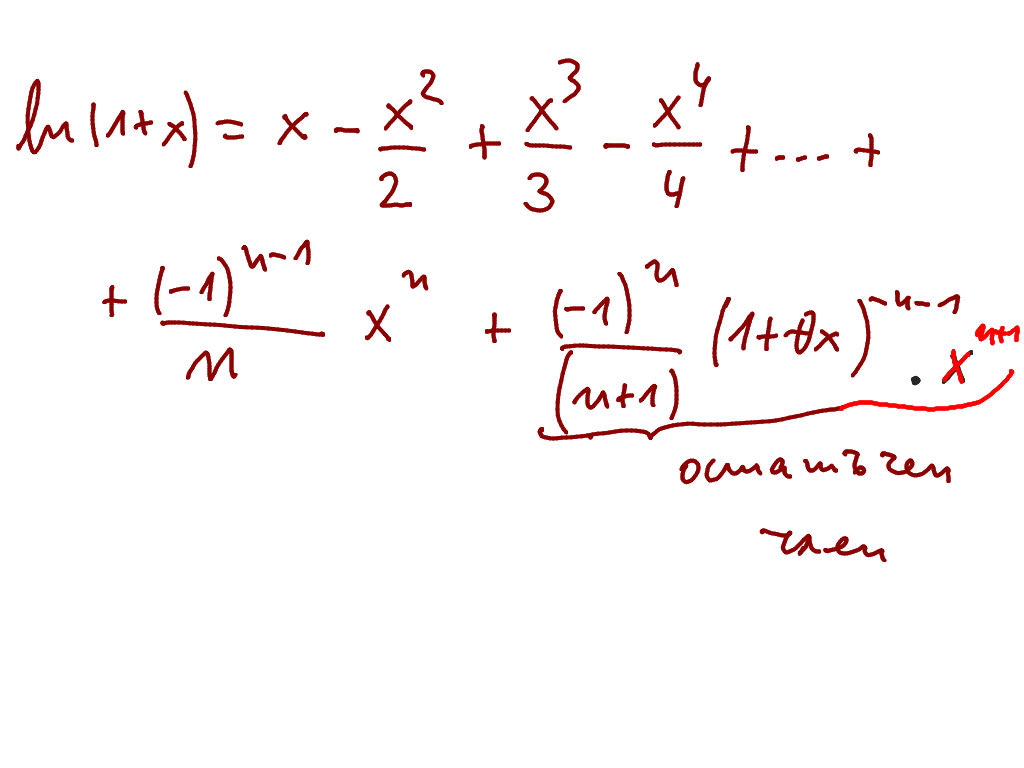 ln(1+x) = x - x²/2 + x³/3 - x⁴/4 + ... +
+ (-1)ⁿ⁻¹/n xⁿ + (-1)ⁿ/(n+1) (1+θx)⁻ⁿ⁻¹ · xⁿ⁺¹
остатъчен
член